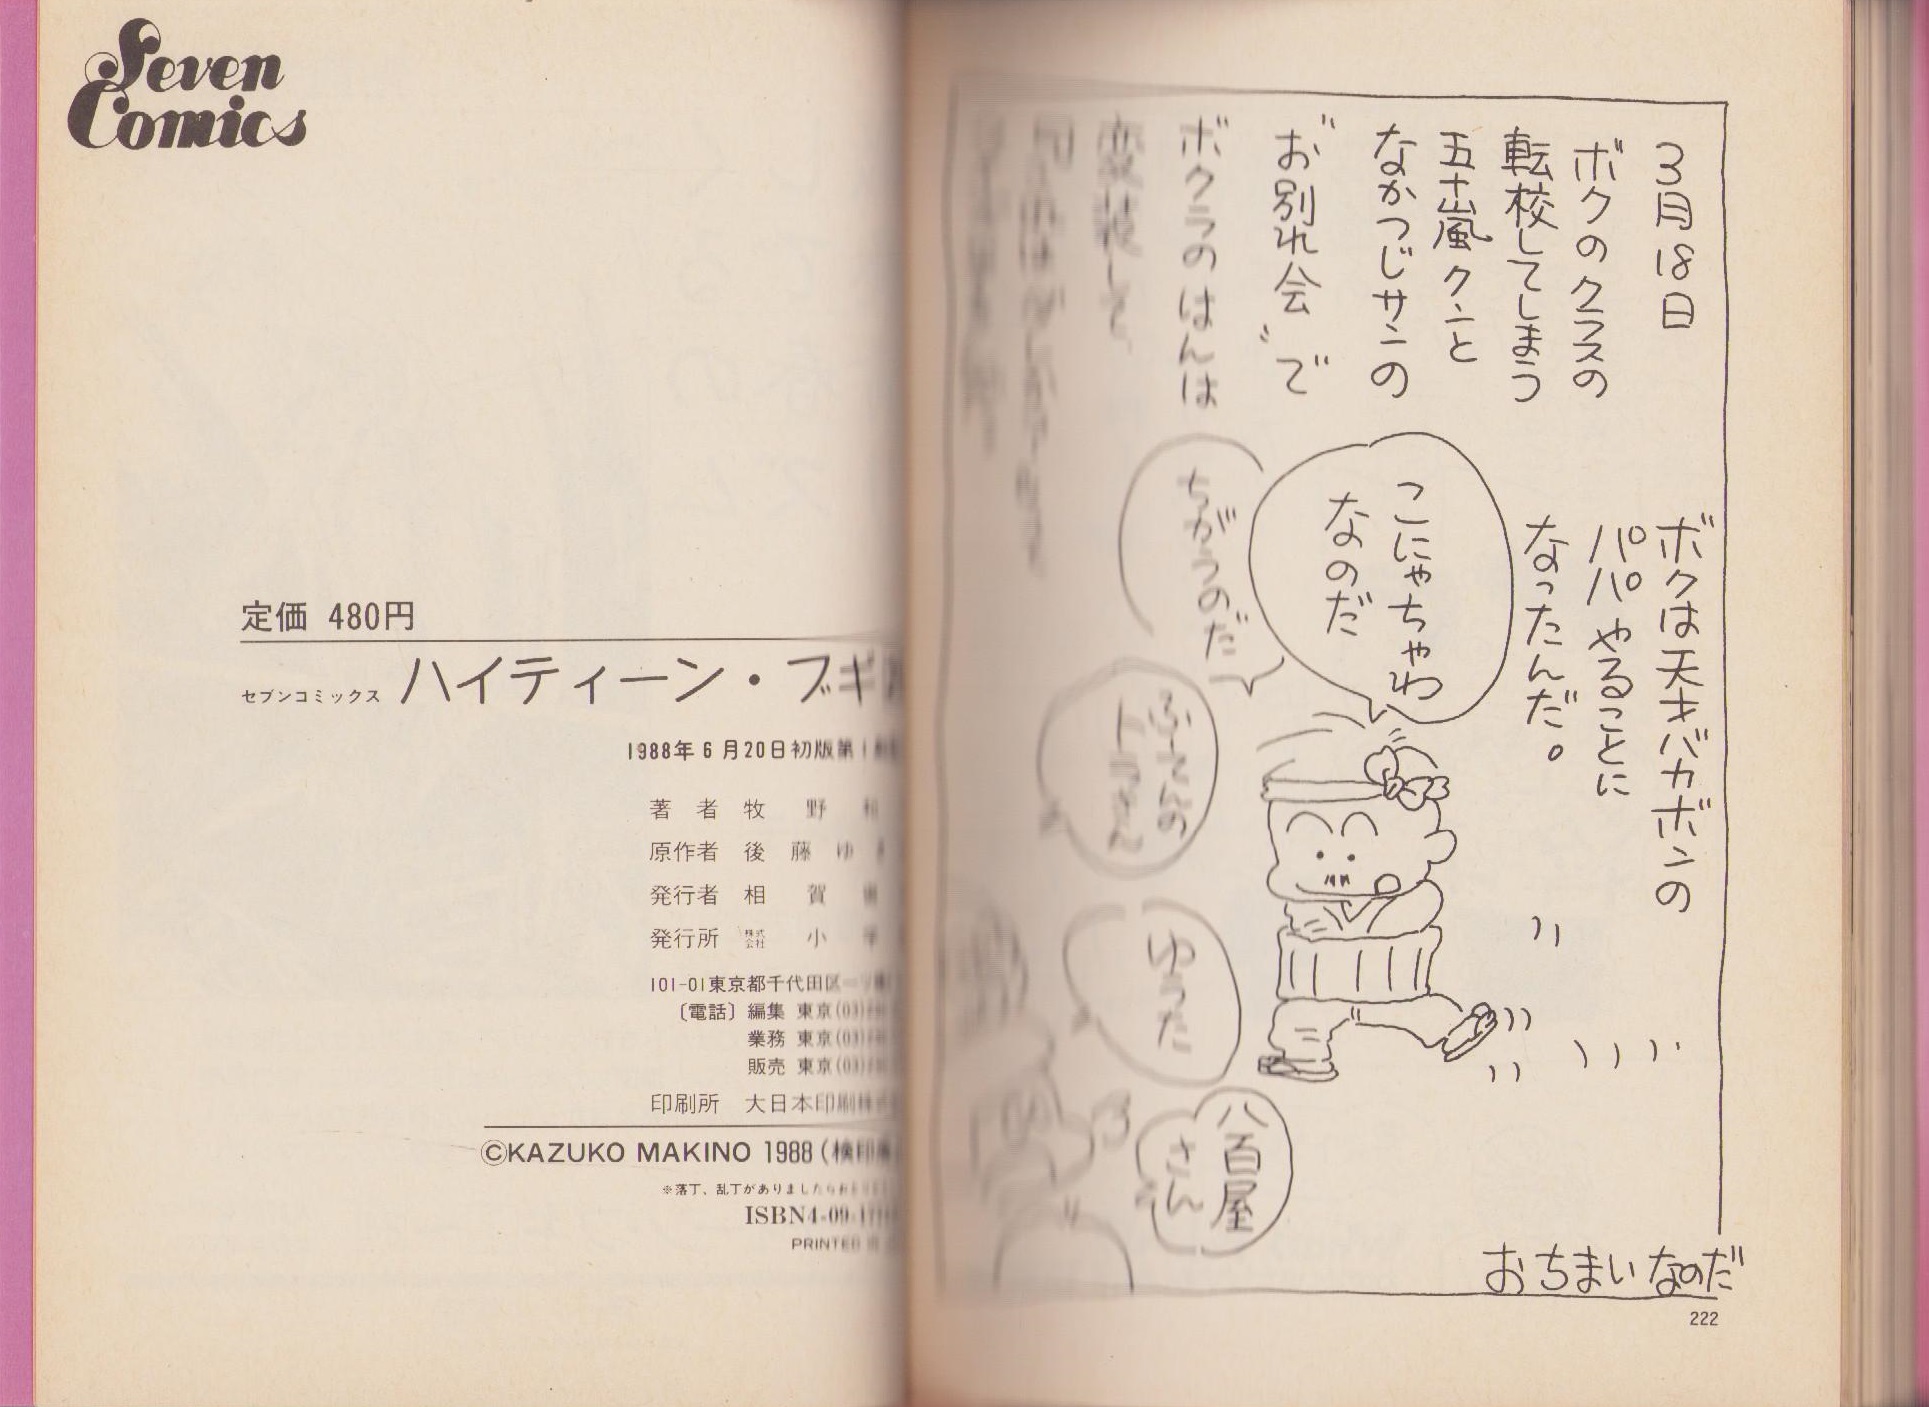 3月18日
ボクのクラスの
転校してしまう
五十嵐クンと
なかつじサンの
“お別れ会”で
ボクラのはんは
変装して
ボクは天才バカボンの
パパやることに
なったんだ。
こにゃちゃわ
なのだ
ちがうのだ
ふーてんの
トラさん
ゆった
八百屋
さん
おちまいなのだ
222
Seven
Comics
定価 480円
セブンコミックス ハイティーン・ブギ
1988年6月20日初版第1
著者 牧野
原作者 後藤ゆ
発行者 相賀
発行所 株式会社 小
101-01東京都千代田区一
〔電話〕編集 東京(03)
業務 東京(03)
販売 東京(03)
印刷所 大日本印刷株
©KAZUKO MAKINO 1988(検印
※落丁、乱丁がありましたら
ISBN4-09-17
PRINTED